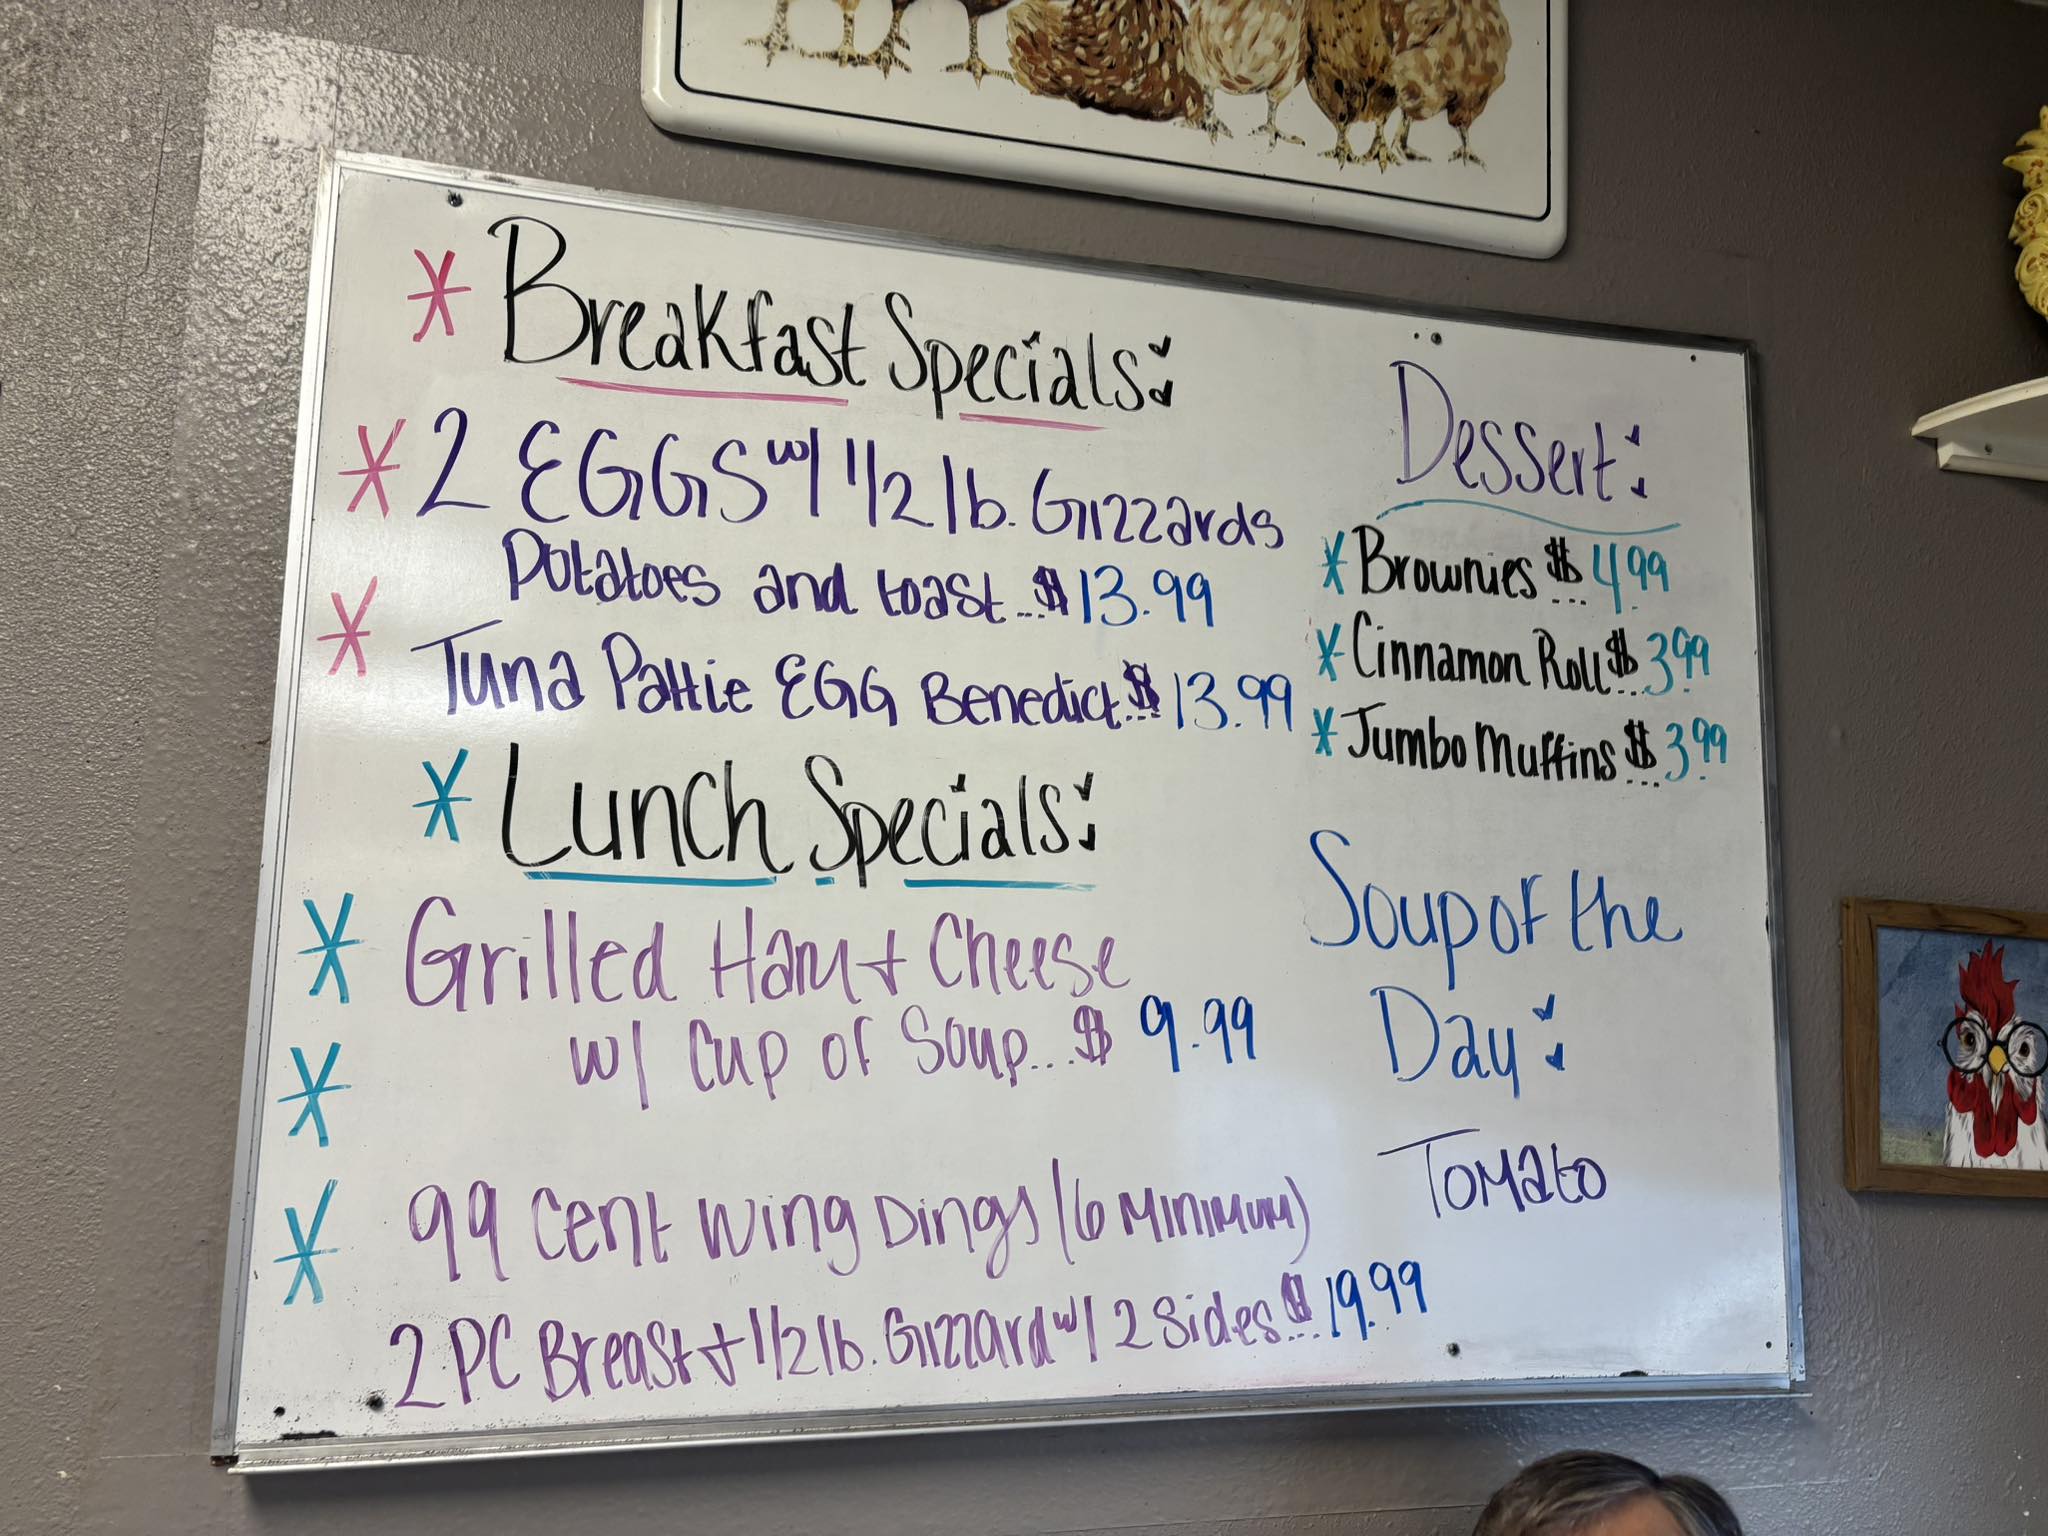 * Breakfast Specials:
* 2 EGGS w/ 1/2 lb. Gizzards
Potatoes and toast...$13.99
* Tuna Pattie EGG Benedict...$13.99
* Lunch Specials:
* Grilled Ham + Cheese
w/ Cup of Soup...$9.99
*
* 99 Cent Wing Dings (6 Minimum)
2 PC Breast + 1/2 lb. Gizzard w/ 2 Sides...$19.99
Dessert:
* Brownies $...4.99
* Cinnamon Roll $...3.99
* Jumbo Muffins $...3.99
Soup of the
Day:
Tomato